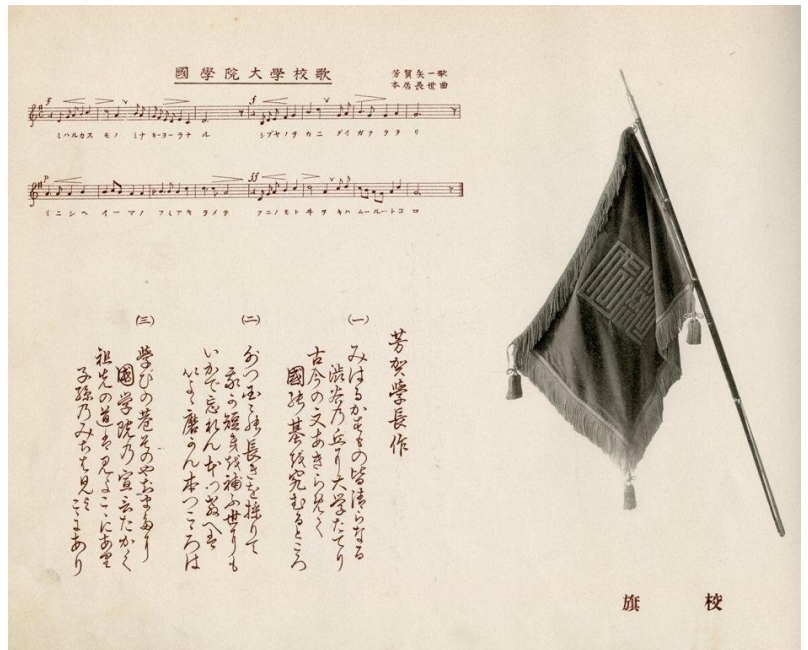 國學院大學校歌
芳賀矢一歌
本居長世曲
ミハルカス モノ ミナキーヨーラナ ル シブヤノヲカニ ダイガクタテリ
イニシヘ イーマノ フミアキラメテ クニノモトヰヲ キハームールートコロ
芳賀學長作
(一)
みはるかすもの皆清らなる
渋谷の丘に大学たてり
古今の文あきらめて
國の基を究むるところ
(二)
外つ国の長きを採りて
我が短きを補ふ世にも
いかで忘れん本つ教へは
いよゝ磨かん本つこころは
(三)
学びの巷そのやちまたに
國学院の宣言たかく
祖先の道は見よここにあり
子孫のみちは見よここにあり
校旗